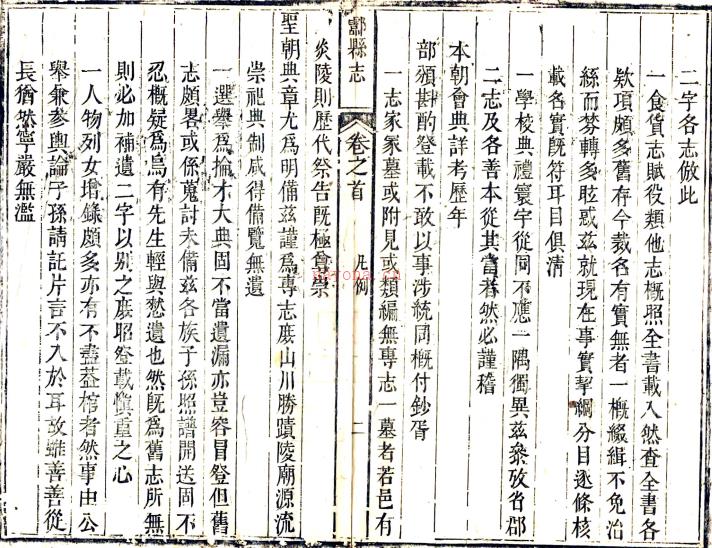 二字各志倣此
一食貨志賦役類他志概照全書載入然查全書各
欵項頗多舊存今裁名有實無者一概綴緝不免治
絲而棼轉多眩惑茲就現在事實挈綱分目逐條核
載名實旣符耳目俱清
一學校典禮寰宇從同不應一隅獨異茲叅攷省郡
二志及各善本從其當者然必謹稽
本朝會典詳考歷年
部頒斟酌登載不敢以事涉統同概付鈔胥
一志家冢墓或附見或類編無專志一墓者若邑有
酃縣志
卷之首
凡例
二
炎陵則歷代祭告旣極尊崇
聖朝典章尤爲明備茲謹爲專志庶山川勝蹟陵廟源流
崇祀典制咸得備覽無遺
一選舉爲掄才大典固不當遺漏亦豈容冒登但舊
志頗畧或係蒐討未備茲各族子孫照譜開送固不
忍概疑爲烏有先生輕與愁遺也然旣爲舊志所無
則必加補遺二字以别之庶昭登載愼重之心
一人物列女增錄頗多亦有不盡葢棺者然事由公
舉兼參輿論子孫請託片言不入於耳故雖善善從
長猶然寧嚴無濫